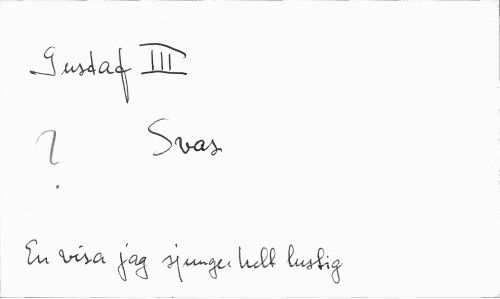 Gustaf III
? Svas
En visa jag sjunger helt lustig